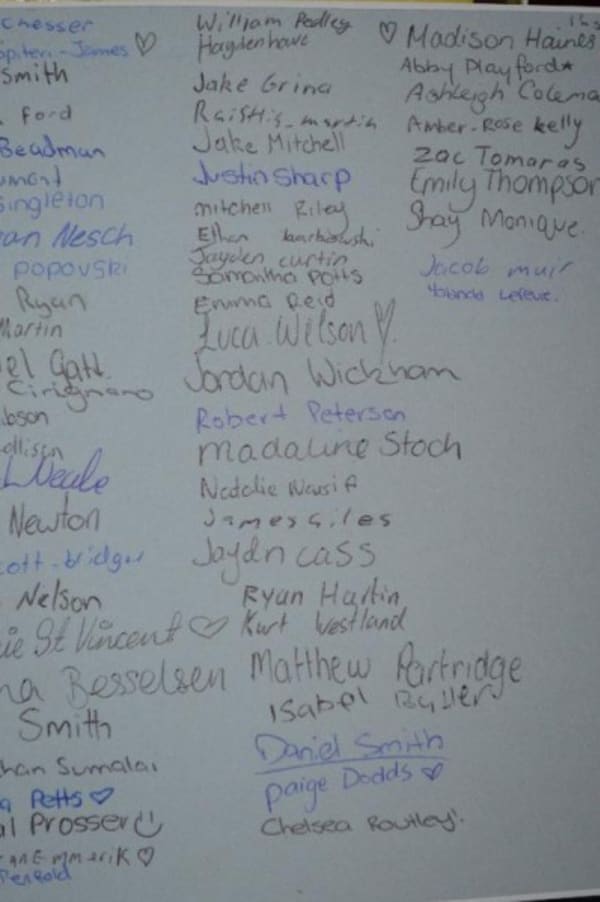 chesser
piteri-James ♡
smith
Ford
Beadman
umont
singleton
an Nesch
POPOVSKI
Ryan
Martin
el Gatt
Cirignano
ibson
ollison
Neale
Newton
cott-bridger
Nelson
ie St Vincent ♡
na Besselsen
Smith
han Sumalai
a Petts ♡
al Prosser
an Emmerik ♡
Penfold
William Padley
Haydenhowe
Jake Grina
martin
Jake Mitchell
Justin Sharp
mitchell Riley
Ethan
Jayden curtin
Samantha potts
Emma Reid
Luca Wilson ♡.
Jordan Wickham
Robert Peterson
madaline Stoch
Natalie
James Giles
Jaydn cass
Ryan Hartin
Kurt Westland
Matthew Partridge
Isabel
Daniel Smith
paige Dodds ♡
Chelsea Routley
♡ Madison Haines
Abby Playford★
Ashleigh Colema
Amber-Rose kelly
Zac Tomaras
Emily Thompson
Shay Monique.
Jacob muir